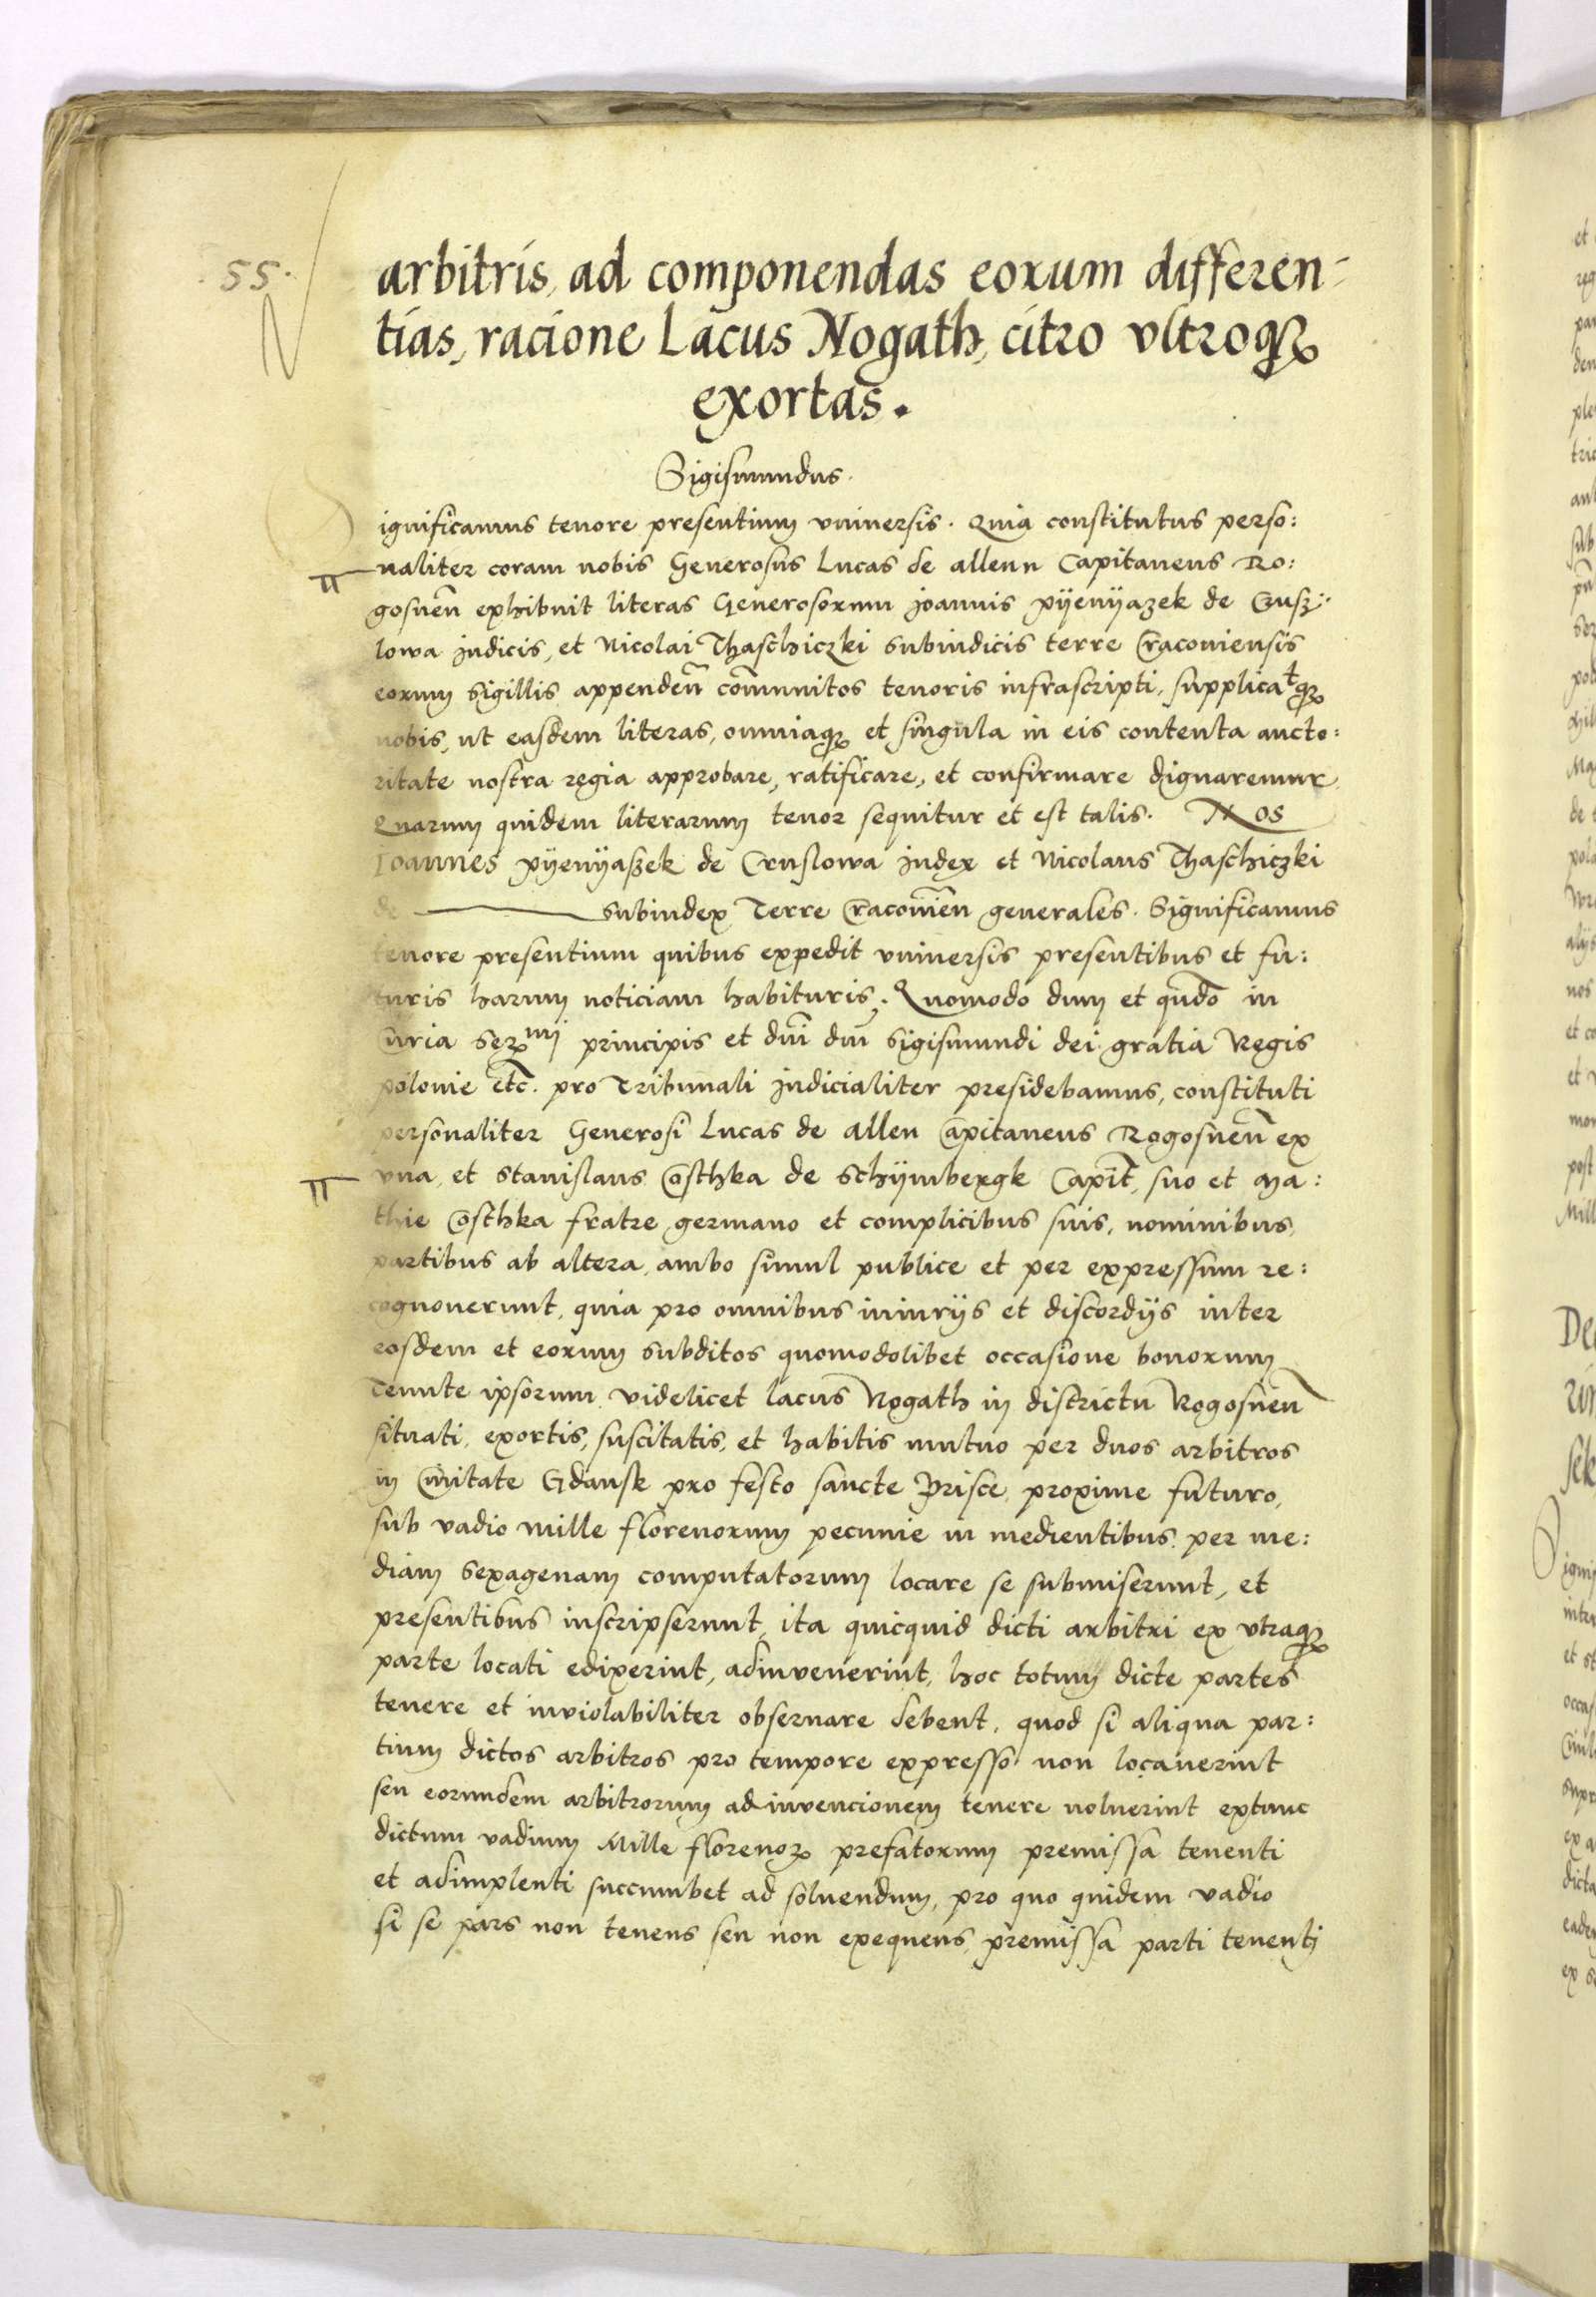 55.
arbitris, ad componendas eorum differen=
tias, racione Lacus Nogath, citro vltroqȝ
exortas.
Sigismundus.
ignificamus tenore presentium vniuersis. Quia constitutus perso:
naliter coram nobis Generosus Lucas de allenn Capitaneus Ro:
gosnen̄ exhibuit literas Generosorum Joannis pÿenÿazek de
lowa Judicis, et Nicolai Thaschiczki subiudicis terre Cracouiensis
eorum sigillis appenden̄ com̄unitos tenoris infrascripti, supplicatqȝ
nobis, ut easdem literas, omniaqȝ et singula in eis contenta aucto:
ritate nostra regia approbare, ratificare, et confirmare dignaremur
Quarum quidem literarum tenor sequitur et est talis. Nos
Joannes pÿenÿaszek de Cruslowa Judex et Nicolaus Thaschiczki
de subiudex Terre Cracouien̄ generales. Significamus
tenore presentium quibus expedit vniuersis presentibus et fu:
turis harum noticiam habituris. Quomodo dum et qn̄do in
Curia Ser^mi principis et dn̄i dn̄i Sigismundi dei gratia Regis
polonie etc̄. pro Tribunali Judicialiter presidebamus, constituti
personaliter Generosi Lucas de allen Capitaneus Rogosnen̄ ex
vna, et Stanislaus Costhka de Schÿmbergk Capit̄, suo et Ma:
thie Costhka fratre germano et complicibus suis, nominibus,
partibus ab altera, ambo simul publice et per expressum re:
cognouerunt, quia pro omnibus iniurÿs et discordÿs inter
eosdem et eorum subditos quomodolibet occasione bonorum
Tenute ipsorum videlicet lacus Nogath in districtu Rogosnen̄
situati, exortis, suscitatis, et habitis mutuo per duos arbitros
in Ciuitate Gdansk pro festo sancte Prisce, proxime futuro,
sub vadio mille florenorum pecunie in medientibus per me:
diam sexagenam computatorum locare se submiserunt, et
presentibus inscripserunt, ita quicquid dicti arbitri ex vtraqȝ
parte locati edixerint, adinvenerint, hoc totum dicte partes
tenere et inviolabiliter obseruare debent, quod si aliqua par:
tium dictos arbitros pro tempore expresso non locauerint
seu eorundem arbitrorum adinvencionem tenere noluerint extunc
dictum vadium Mille florenoȝ prefatorum premissa tenenti
et adimplenti succumbet ad soluendum, pro quo quidem vadio
si se pars non tenens seu non exequens, premissa parti tenenti